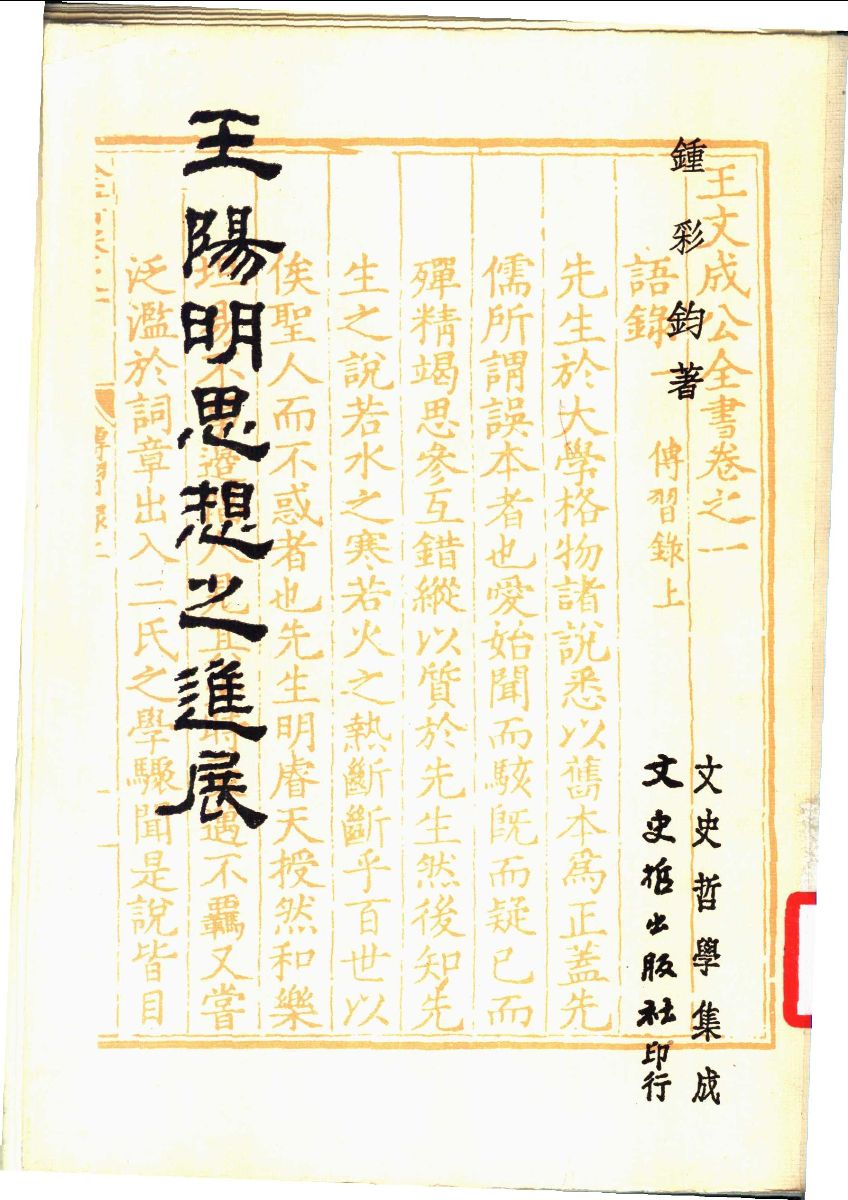 鍾彩鈞著
王陽明思想之進展
文史哲學集成
文史哲出版社印行
王文成公全書卷之一
語錄一 傳習錄上
先生於大學格物諸說悉以舊本爲正蓋先
儒所謂誤本者也愛始聞而駭旣而疑已而
殫精竭思參互錯縱以質於先生然後知先
生之說若水之寒若火之熱斷斷乎百世以
俟聖人而不惑者也先生明睿天授然和樂
坦易不邊人見其時遇不羈又嘗
泛濫於詞章出入二氏之學驟聞是說皆目